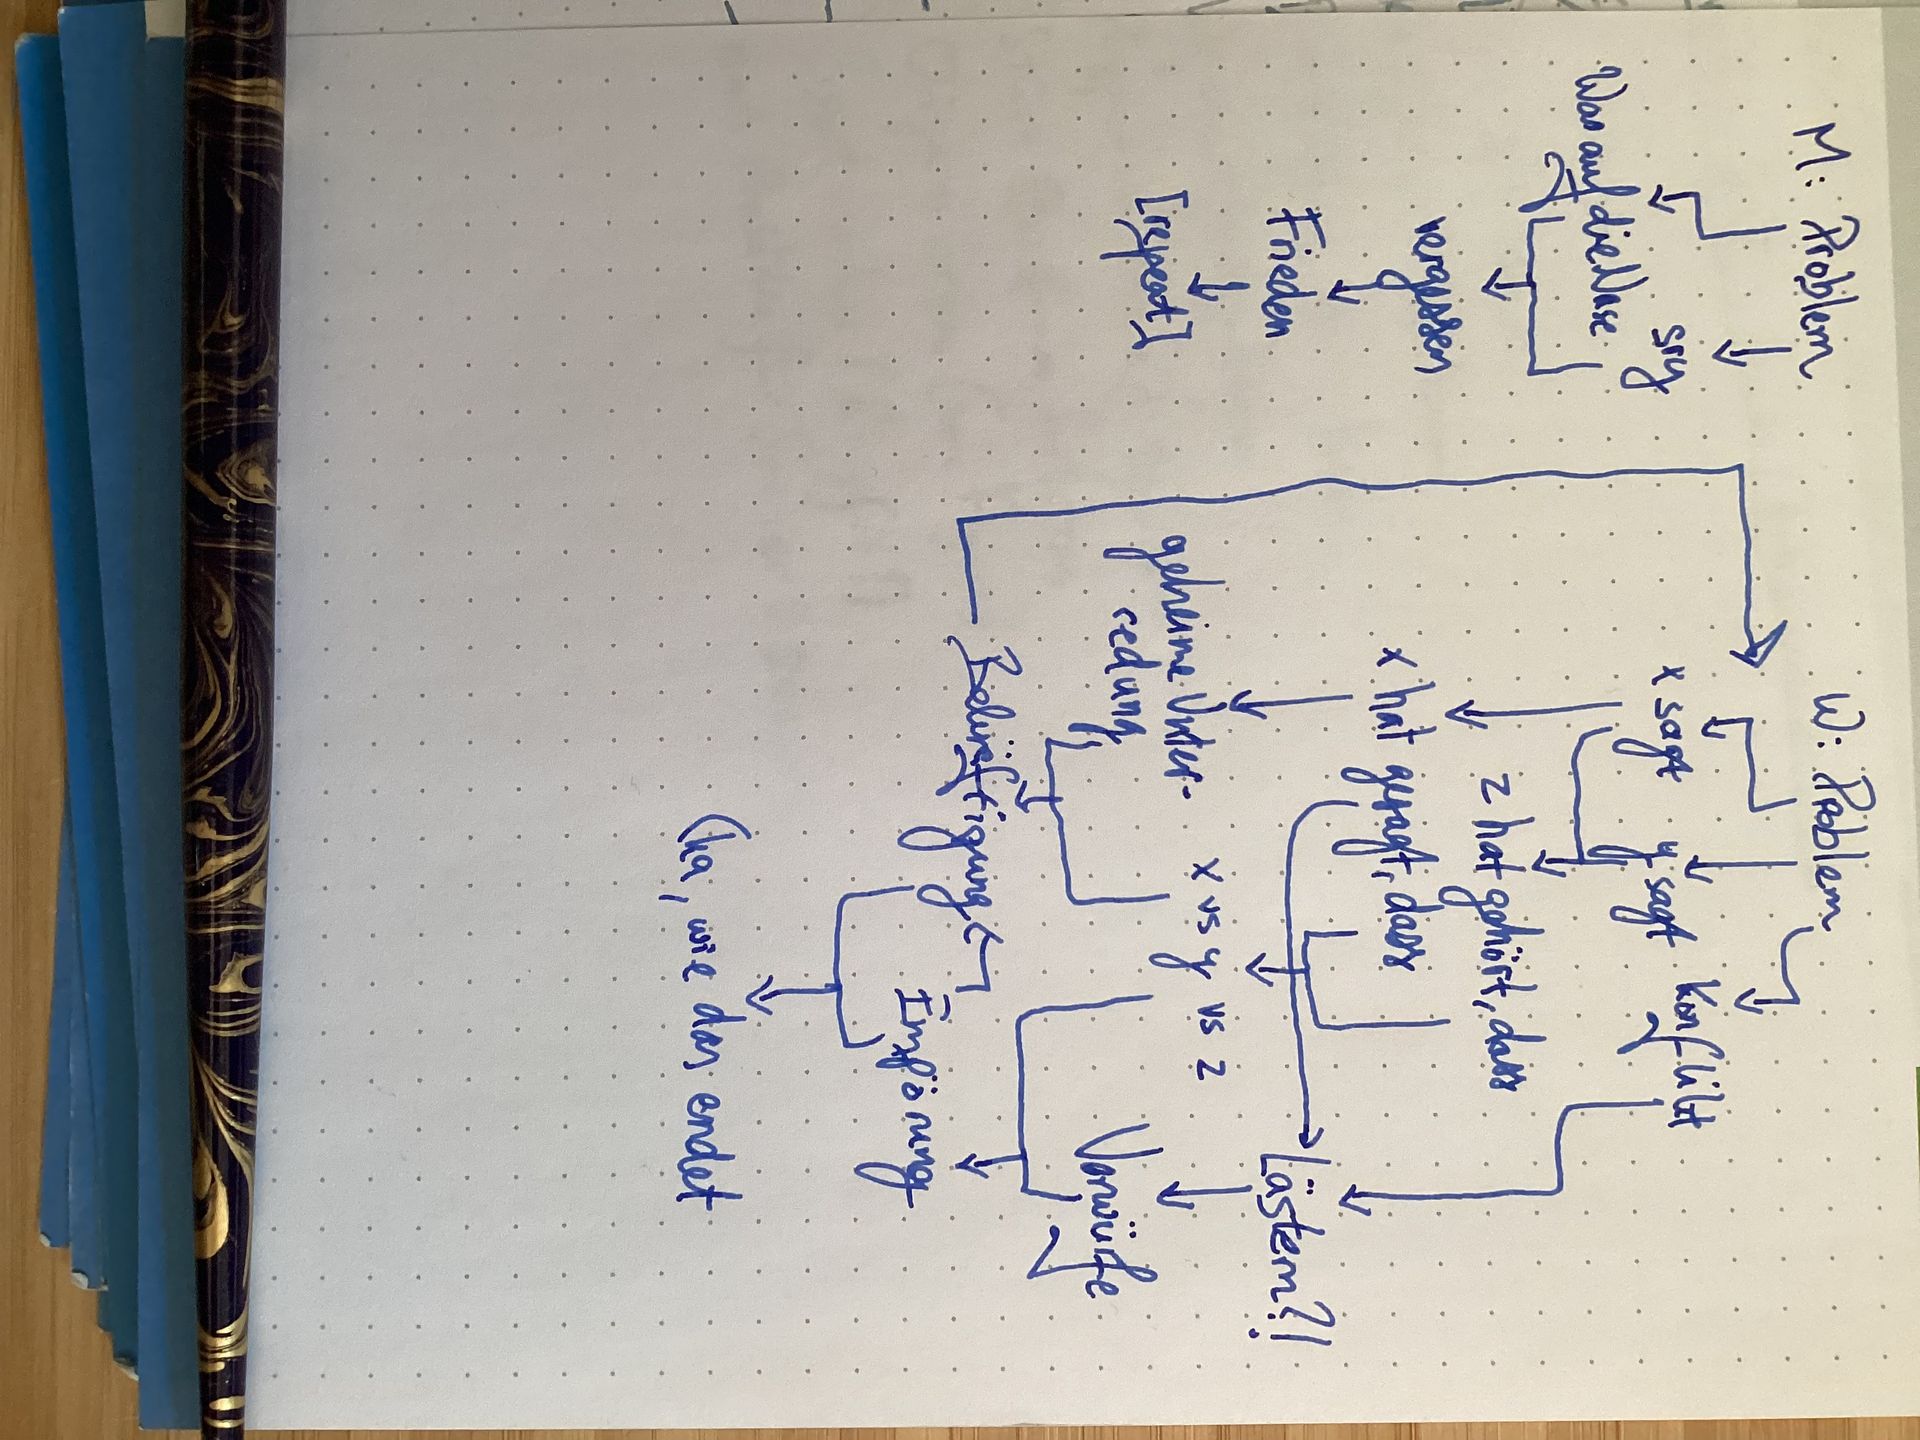 M: Problem
sry
Was auf die Nase
vergessen
Frieden
[repeat]
W: Problem
x sagt
y sagt
Konflikt
z hat gehört, dass
x hat gesagt, dass
Lästern?!
geheime Unter-
redung
x vs y vs z
Vorwürfe
Empörung
(ka, wie das endet